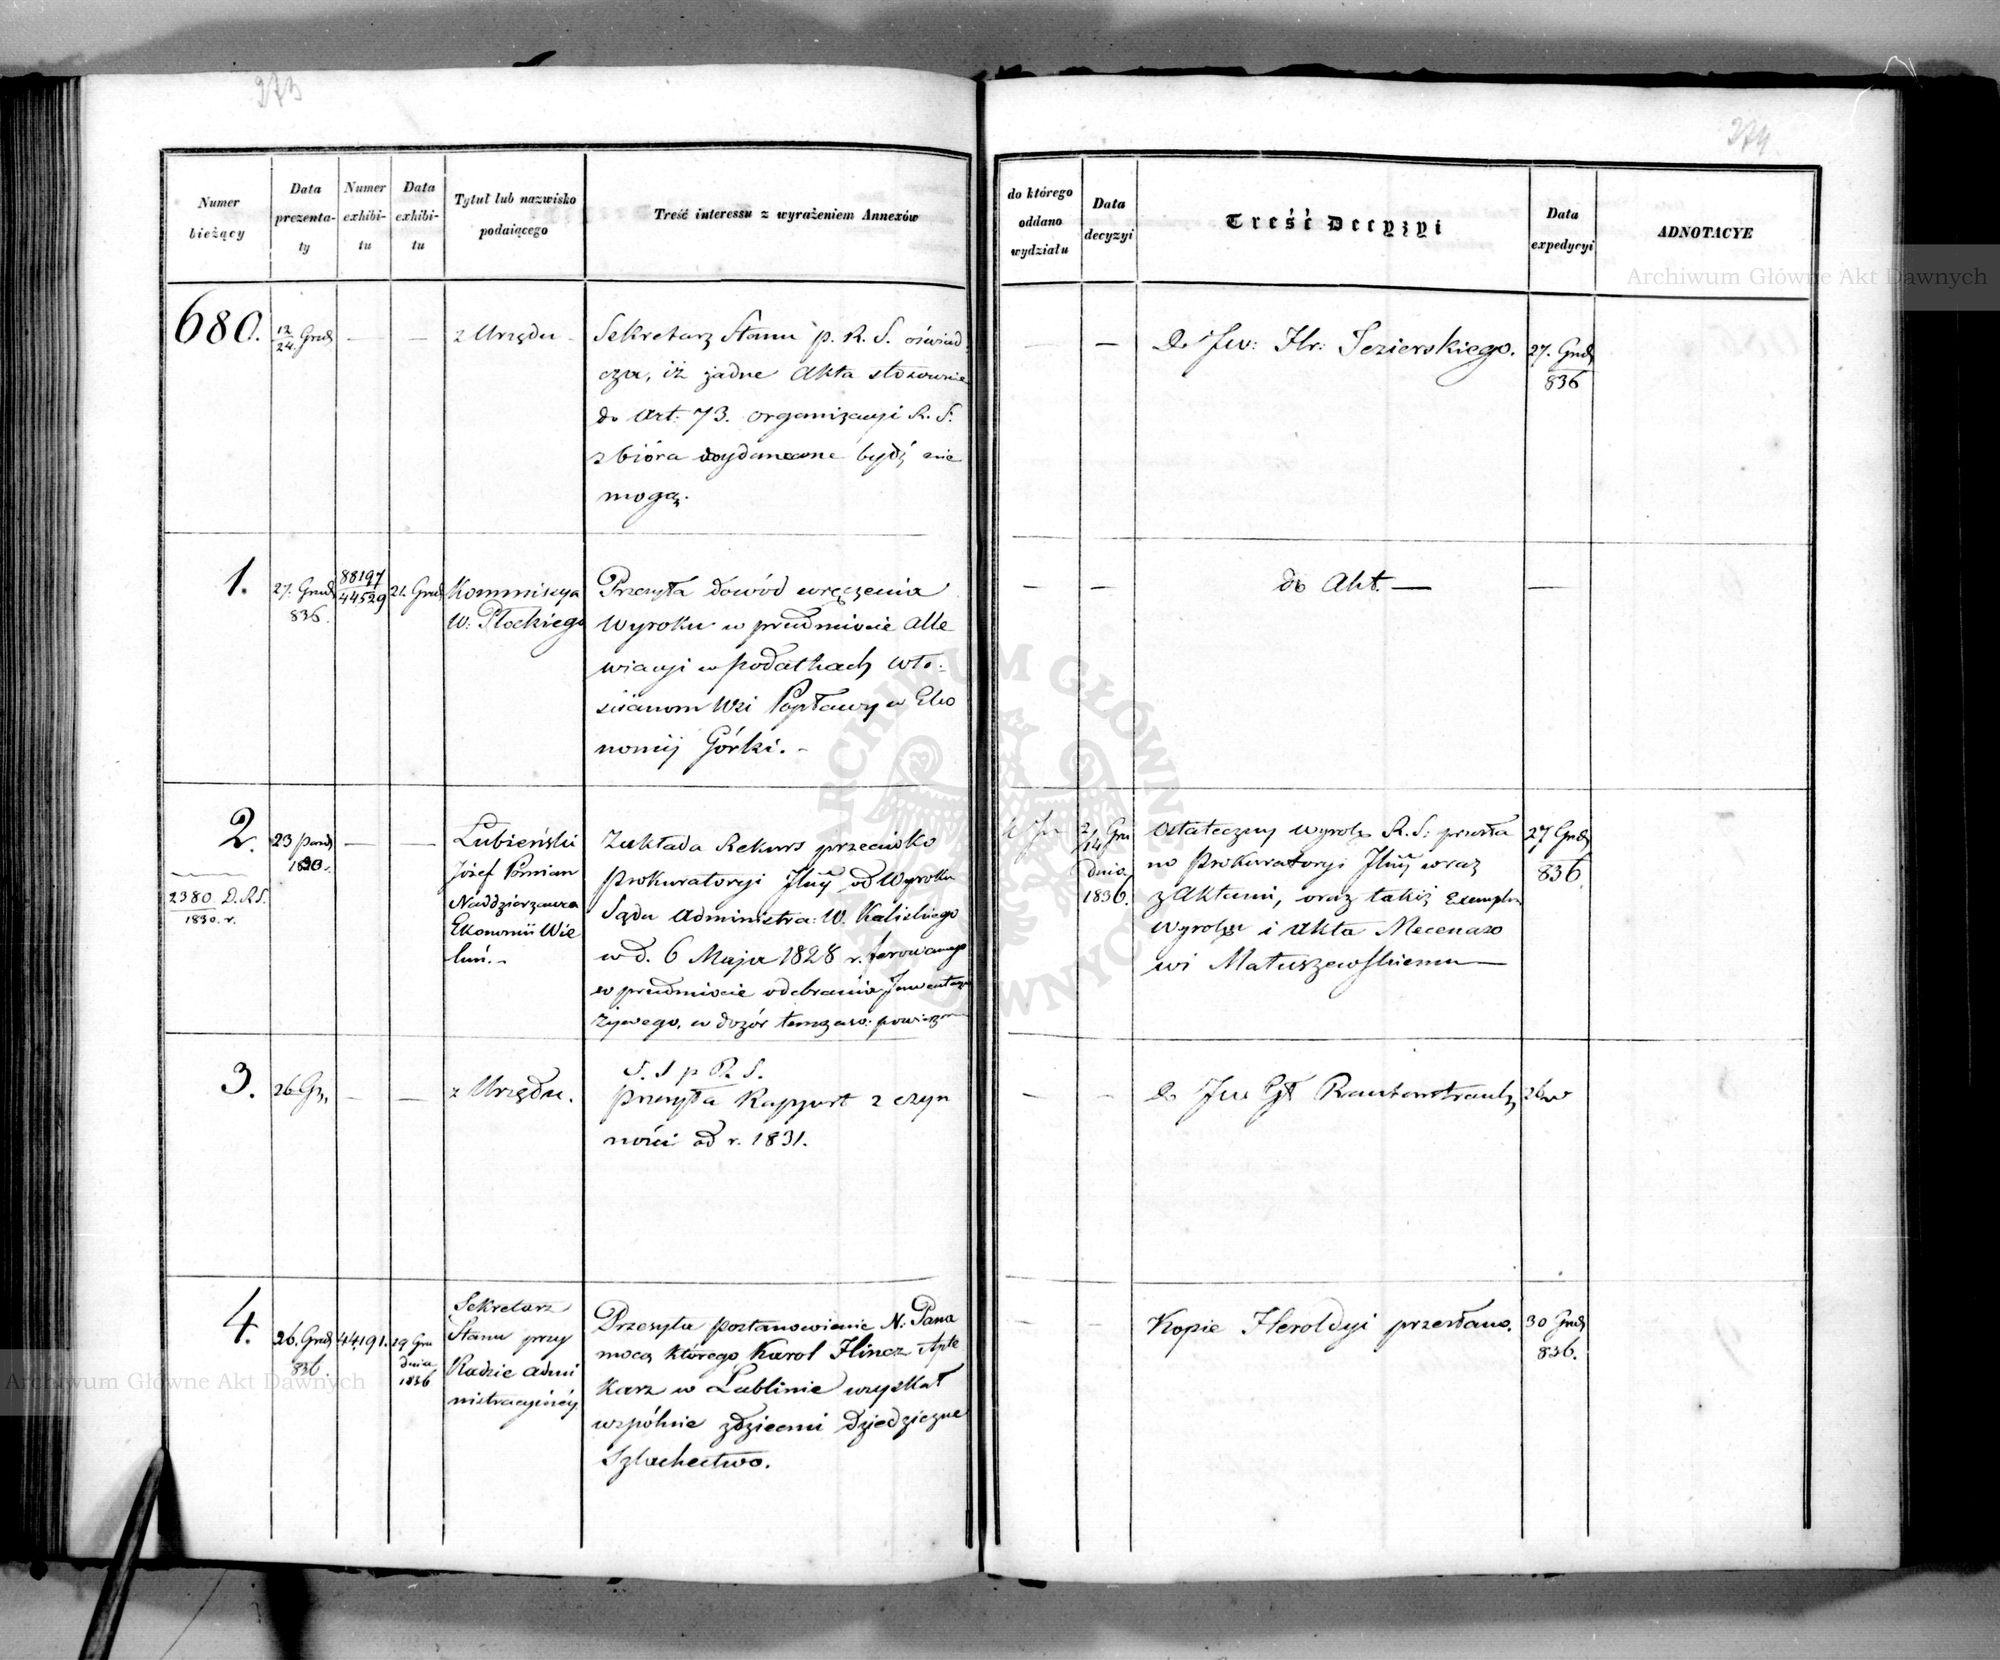 273
Numer bieżący
Data prezentaty
Numer exhibitu
Data exhibitu
Tytuł lub nazwisko podaiącego
Treść interessu z wyrażeniem Annexów
680.
12/24. Grud
z Urzędu
Sekretarz Stanu p. R. S. oświad
cza, iż żadne Akta stosownie
do Art: 73. organizacyi R. S.
zbióra wydawane bydź nie
mogą.
1.
27. Grud
836.
88197
44529
21. Grud
Kommissya
W: Płockiego
Przesyła dowód wręczenia
Wyroku w przedmiocie Alle
wiacyi w podatkach Wło-
ścianom Wsi Popławy w Eko
nomij Górki.
2.
2380. D.R.S.
1830. r.
23
1830.
Łubieński
Józef Pomian
Naddzierzawca
Ekonomii Wie
luń.
Zakłada Rekurs przeciwko
Prokuratoryi Jlnéj od Wyroku
Sądu Administra: W. Kaliskiego
w d. 6 Maja 1828 r. ferowanego
w przedmiocie odebrania Inwentarza
żywego, w dozór tymczaso: powierzon
3.
26 Gr.
z Urzędu.
S. S p R. S.
przesyła Rapport z czyn
ności od r. 1831.
4.
26. Grud
836.
44191.
19 Gru
dnia
1836
Sekretarz
Stanu przy
Radzie Admi
nistracyinéy
Przesyła postanowienie N: Pana
mocą którego Karol Hincz Apte
karz w Lublinie uzyskał
wspólnie z dziecmi dziedziczne
Szlachectwo.
274
do którego oddano wydziału
Data decyzyi
Treść Decyzyi
Data expedycyi
ADNOTACYE
do Jw: Hr: Jezierskiego.
27. Grud
836
do Akt.
2/14 Gru
dnia
1836.
Ostateczny wyrok R. S: przesła
no Prokuratoryi Jlnéj wraz
z Aktami, oraz takiż Exemplarz
Wyroku i akta Mecenaso
wi Matuszewskiemu
27 Grud
836.
do Jw
Kopie Heroldyi przesłano.
30 Grud
836.
Archiwum Główne Akt Dawnych
Archiwum Główne Akt Dawnych
ARCHIWUM GŁÓWNE AKT DAWNYCH